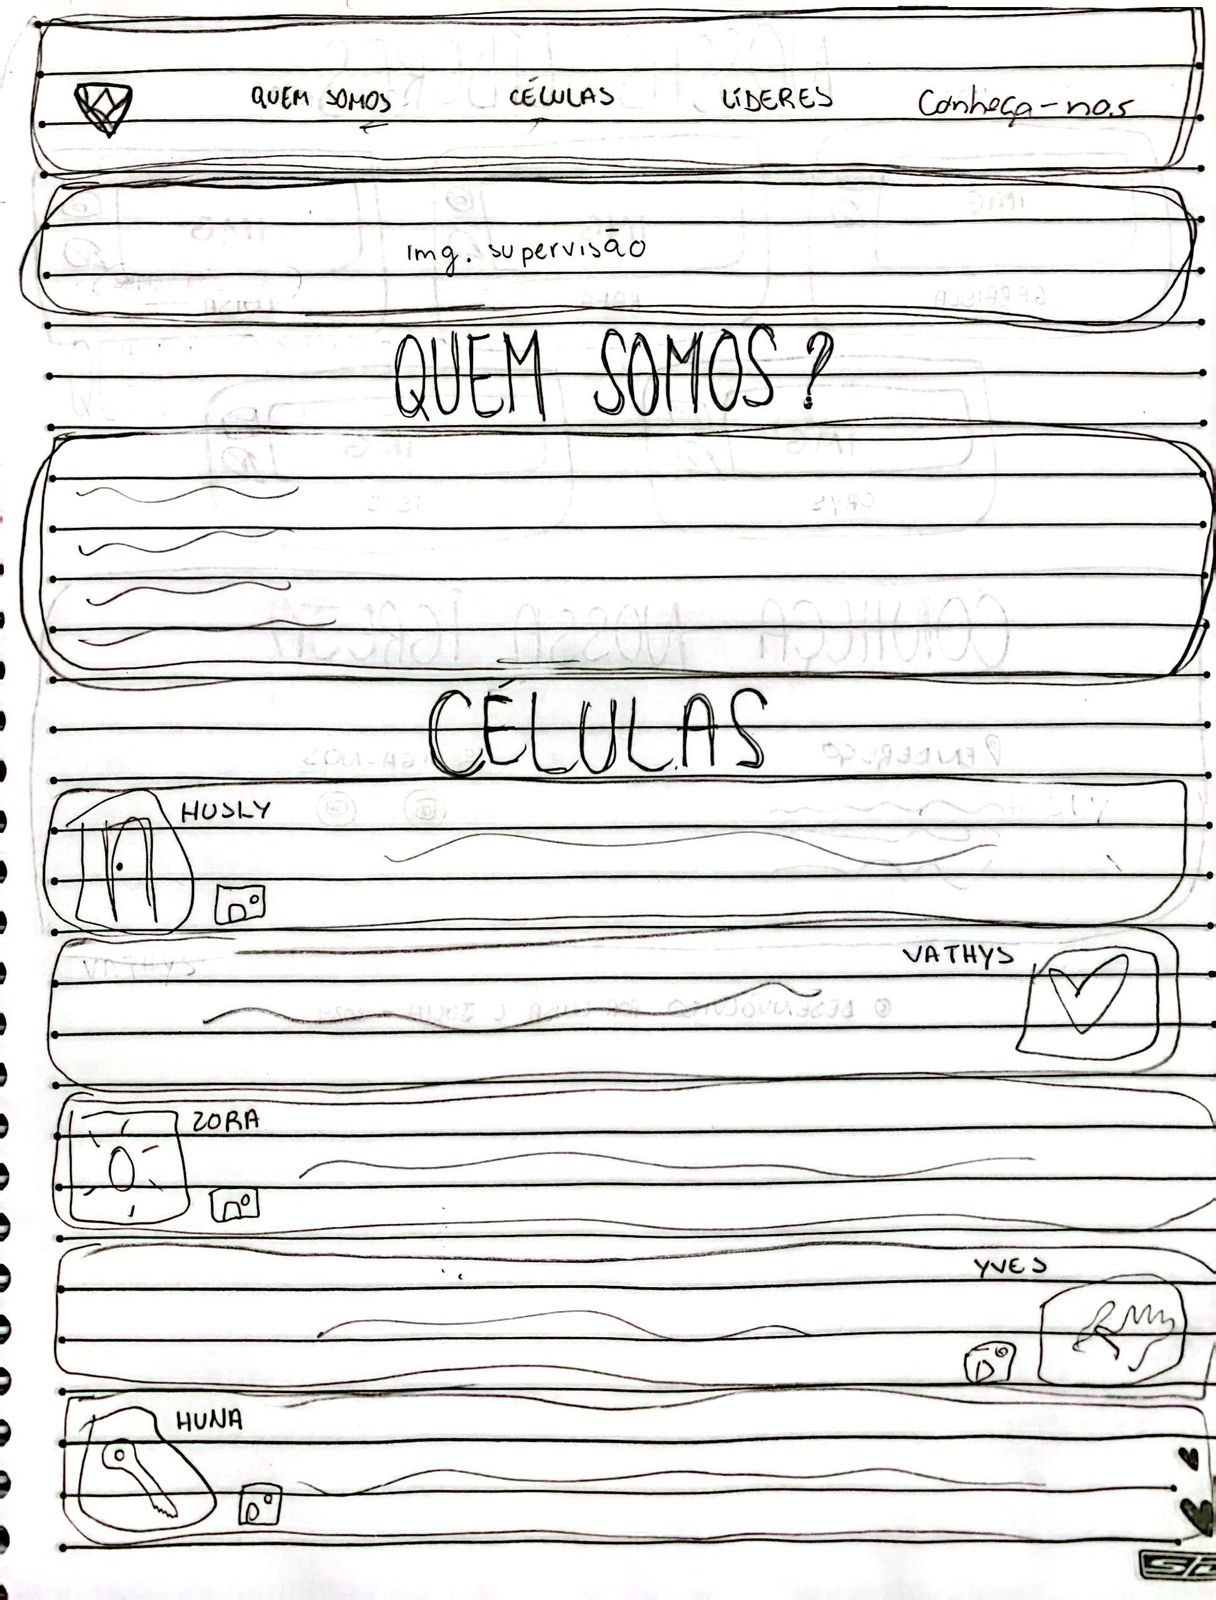 QUEM SOMOS CÉLULAS LÍDERES Conheça-nos
Img. supervisão
QUEM SOMOS?
CÉLULAS
HUSLY
VATHYS
ZORA
YVES
HUNA